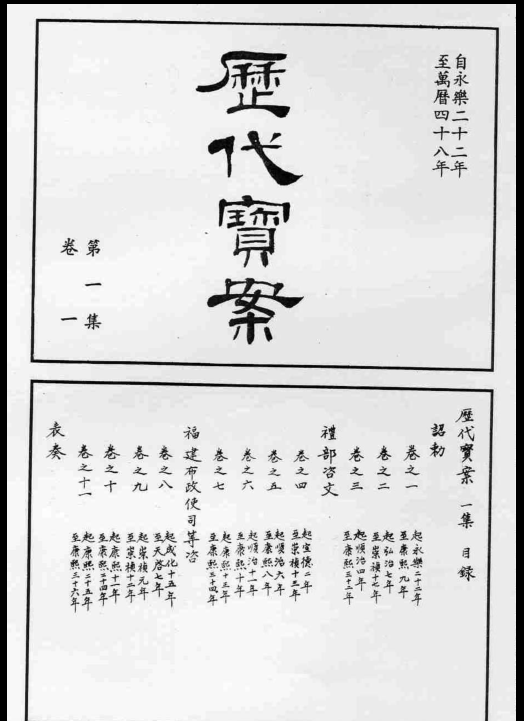 自永樂二十二年
至萬曆四十八年
歷代寶案
第一集
卷一
歷代寶案 一集 目録
詔勅
卷之一 起永樂二十二年
至康熙九年
卷之二 起弘治七年
至崇禎十三年
卷之三 起順治四年
至康熙三十二年
禮部咨文
卷之四 起宣德二年
至崇禎十三年
卷之五 起順治六年
至康熙八年
卷之六 起順治十一年
至康熙十三年
卷之七 起康熙十三年
至康熙三十四年
福建布政使司等咨
卷之八 起成化十五年
至天啓七年
卷之九 起崇禎元年
至崇禎十二年
卷之十 起康熙十一年
至康熙二十四年
卷之十一 起康熙二十五年
至康熙三十六年
表奏